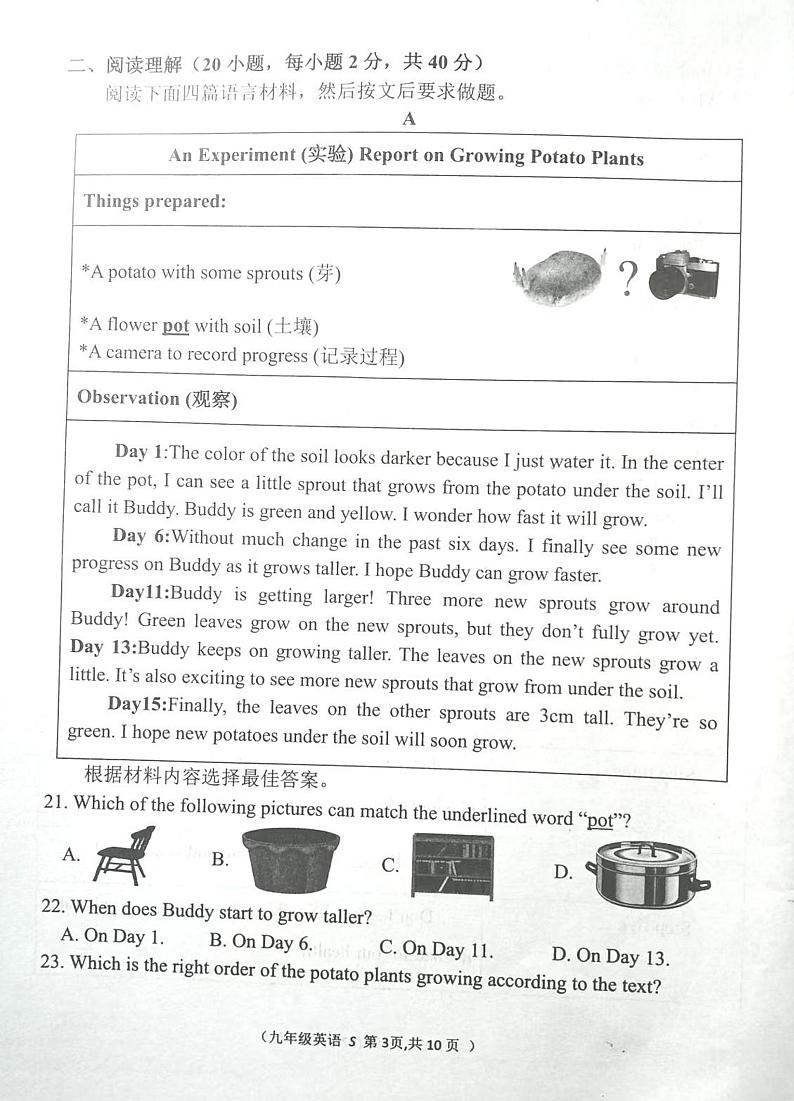 二、阅读理解（20 小题，每小题 2 分，共 40 分）
阅读下面四篇语言材料，然后按文后要求做题。
A
An Experiment (实验) Report on Growing Potato Plants
Things prepared:
*A potato with some sprouts (芽)
?
*A flower pot with soil (土壤)
*A camera to record progress (记录过程)
Observation (观察)
Day 1:The color of the soil looks darker because I just water it. In the center
of the pot, I can see a little sprout that grows from the potato under the soil. I'll
call it Buddy. Buddy is green and yellow. I wonder how fast it will grow.
Day 6:Without much change in the past six days. I finally see some new
progress on Buddy as it grows taller. I hope Buddy can grow faster.
Day11:Buddy is getting larger! Three more new sprouts grow around
Buddy! Green leaves grow on the new sprouts, but they don't fully grow yet.
Day 13:Buddy keeps on growing taller. The leaves on the new sprouts grow a
little. It's also exciting to see more new sprouts that grow from under the soil.
Day15:Finally, the leaves on the other sprouts are 3cm tall. They're so
green. I hope new potatoes under the soil will soon grow.
根据材料内容选择最佳答案。
21. Which of the following pictures can match the underlined word “pot”?
A. B. C. D.
22. When does Buddy start to grow taller?
A. On Day 1. B. On Day 6. C. On Day 11. D. On Day 13.
23. Which is the right order of the potato plants growing according to the text?
（九年级英语 S 第 3页,共 10 页 ）